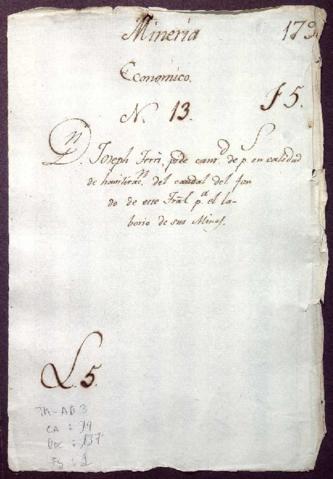 Minería 179
Económico.
N. 13. F 5.
Dn. Joseph pide cantd. de ps. en calidad
de havilitn. del caudal del fon
do de este Tral. pa. el la-
borio de sus Minas.
L. 5.
TM-AD 3
CA : 19
Doc : 137
Fs : 1